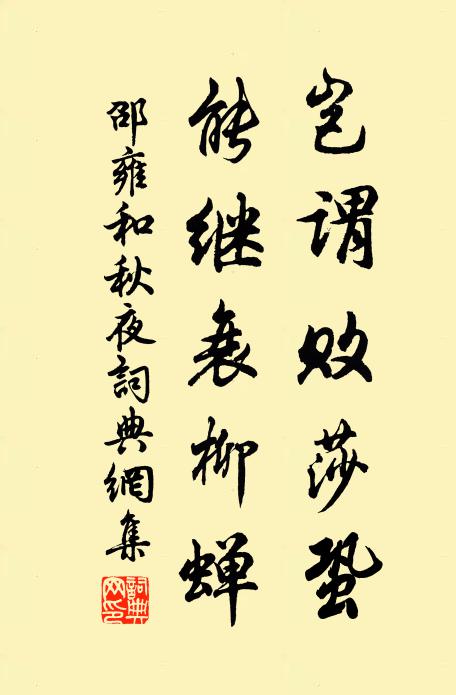 岂谓败莎蛩
能继衰柳蝉
邵雍和秋夜詞典網集
詞典網印